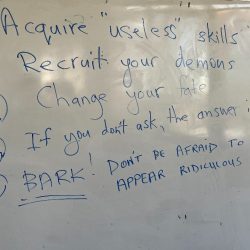 Acquire "useless" skills
Recruit your demons
Change your fate
If you don't ask, the answer
BARK! DON'T BE AFRAID TO
APPEAR RIDICULOUS